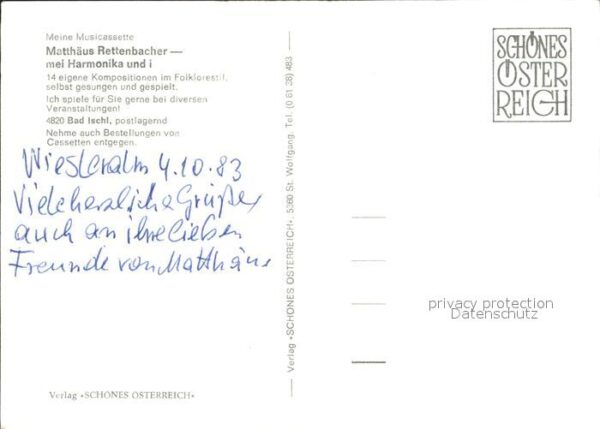 Meine Musicassette
Matthäus Rettenbacher —
mei Harmonika und i
14 eigene Kompositionen im Folklorestil,
selbst gesungen und gespielt.
Ich spiele für Sie gerne bei diversen
Veranstaltungen!
4820 Bad Ischl, postlagernd
Nehme auch Bestellungen von
Cassetten entgegen.
4.10.83
Viele herzliche Grüße
auch an ihre lieben
Freunde von Matthäus
Verlag »SCHÖNES ÖSTERREICH«
Verlag »SCHÖNES ÖSTERREICH« 5360 St. Wolfgang, Tel. (0 61 38) 483
SCHÖNES
ÖSTER
REICH
privacy protection
Datenschutz